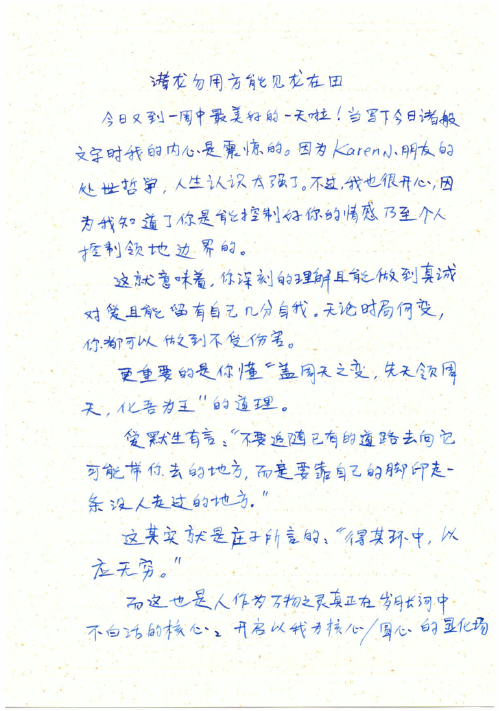 潜龙勿用方能见龙在田
今日又到一周中最美好的一天啦！当写下今日诸般
文字时我的内心是震惊的。因为Karen小朋友的
处世哲学，人生认识太强了。不过，我也很开心，因
为我知道了你是能控制好你的情感乃至个人
控制领地边界的。
这就意味着，你深刻的理解且能做到真诚
对爱且能留有自己几分自我。无论时局何变，
你都可以做到不受伤害。
更重要的是你懂“盖周天之变，先天领周
天，化吾为王”的道理。
爱默生有言：“不要追随已有的道路去向它
可能带你去的地方，而是要靠自己的脚印走一
条没人走过的地方。”
这其实就是庄子所言的：“得其环中，以
应无穷。”
而这也是人作为万物之灵真正在岁月长河中
不白活的核心。开启以我为核心/圆心的显化场